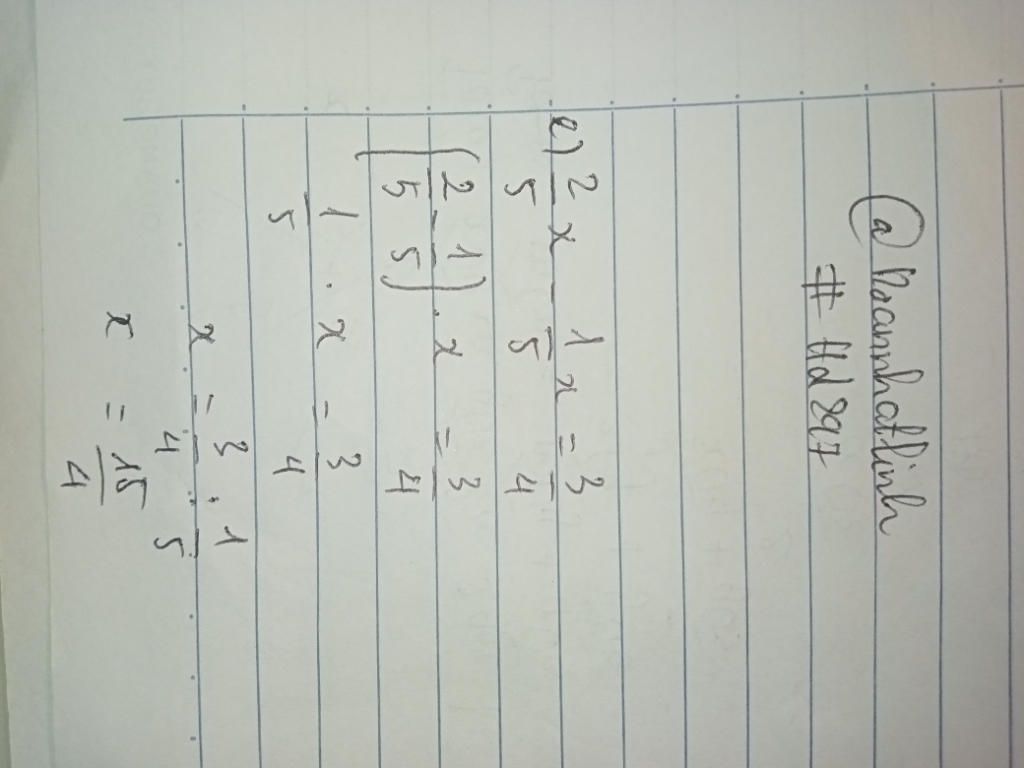 @ Hoannhatlinh
# Hd 297
e) 2/5 x - 1/5 x = 3/4
(2/5 - 1/5) . x = 3/4
1/5 . x = 3/4
x = 3/4 : 1/5
x = 15/4